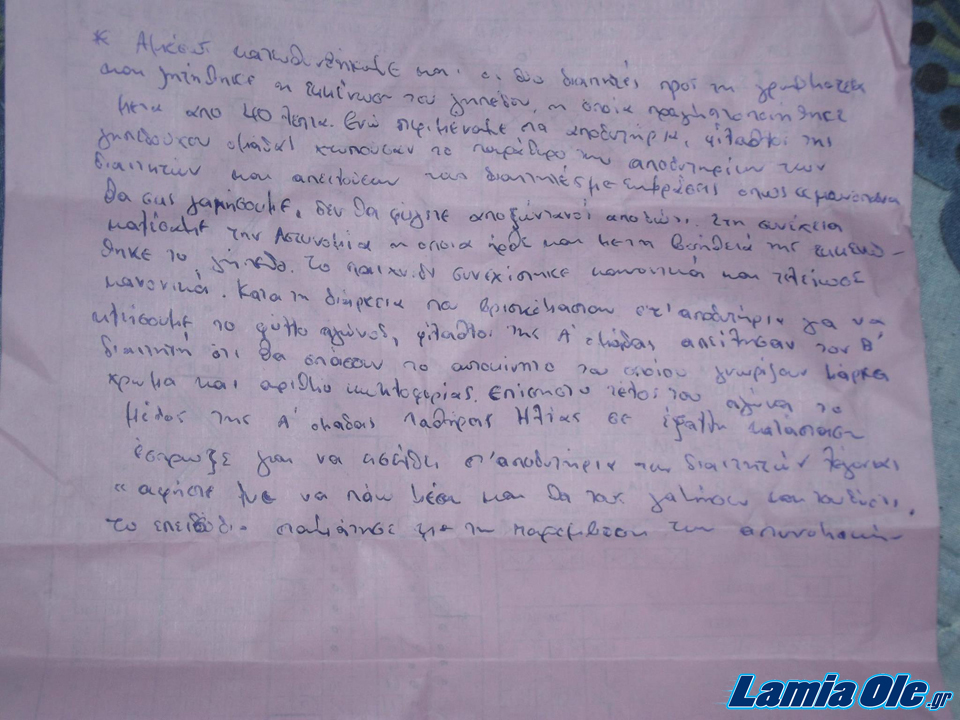 * Αμέσως κατευθυνθήκαμε και οι δύο διαιτητές προς τη γραμματεία
και ζητήθηκε η εκκένωση του γηπέδου, η οποία πραγματοποιήθηκε
μετά από 40 λεπτά. Ενώ περιμέναμε στα αποδυτήρια, φίλαθλοι της
γηπεδούχου ομάδας χτυπούσαν το παράθυρο των αποδυτηρίων των
διαιτητών και απειλούσαν τους διαιτητές με εκφράσεις όπως
θα σας γαμήσουμε, δεν θα φύγετε από ζωντανοί από δω. Στη συνέχεια
καλέσαμε την Αστυνομία η οποία ήρθε και με τη βοήθειά της εκκενώ-
θηκε το γήπεδο. Το παιχνίδι συνεχίστηκε κανονικά και τελείωσε
κανονικά. Κατά τη διάρκεια που βρισκόμασταν στ' αποδυτήρια για να
κλείσουμε το φύλλο αγώνος, φίλαθλοι της Α' ομάδας απείλησαν τον Β'
διαιτητή ότι θα σπάσουν το αυτοκίνητο του οποίου γνωρίζουν μάρκα
χρώμα και αριθμό κυκλοφορίας. Επίσης στο τέλος του αγώνα το
μέλος της Α' ομάδας Ηλίας σε έξαλλη κατάσταση
έσπρωξε για να εισέλθη στ' αποδυτήρια των διαιτητών λέγοντας
"αφήστε με να πάω μέσα και θα τους γαμήσω
το επεισόδιο σταμάτησε με την παρέμβαση των αστυνομικών
Lamia Ole.gr